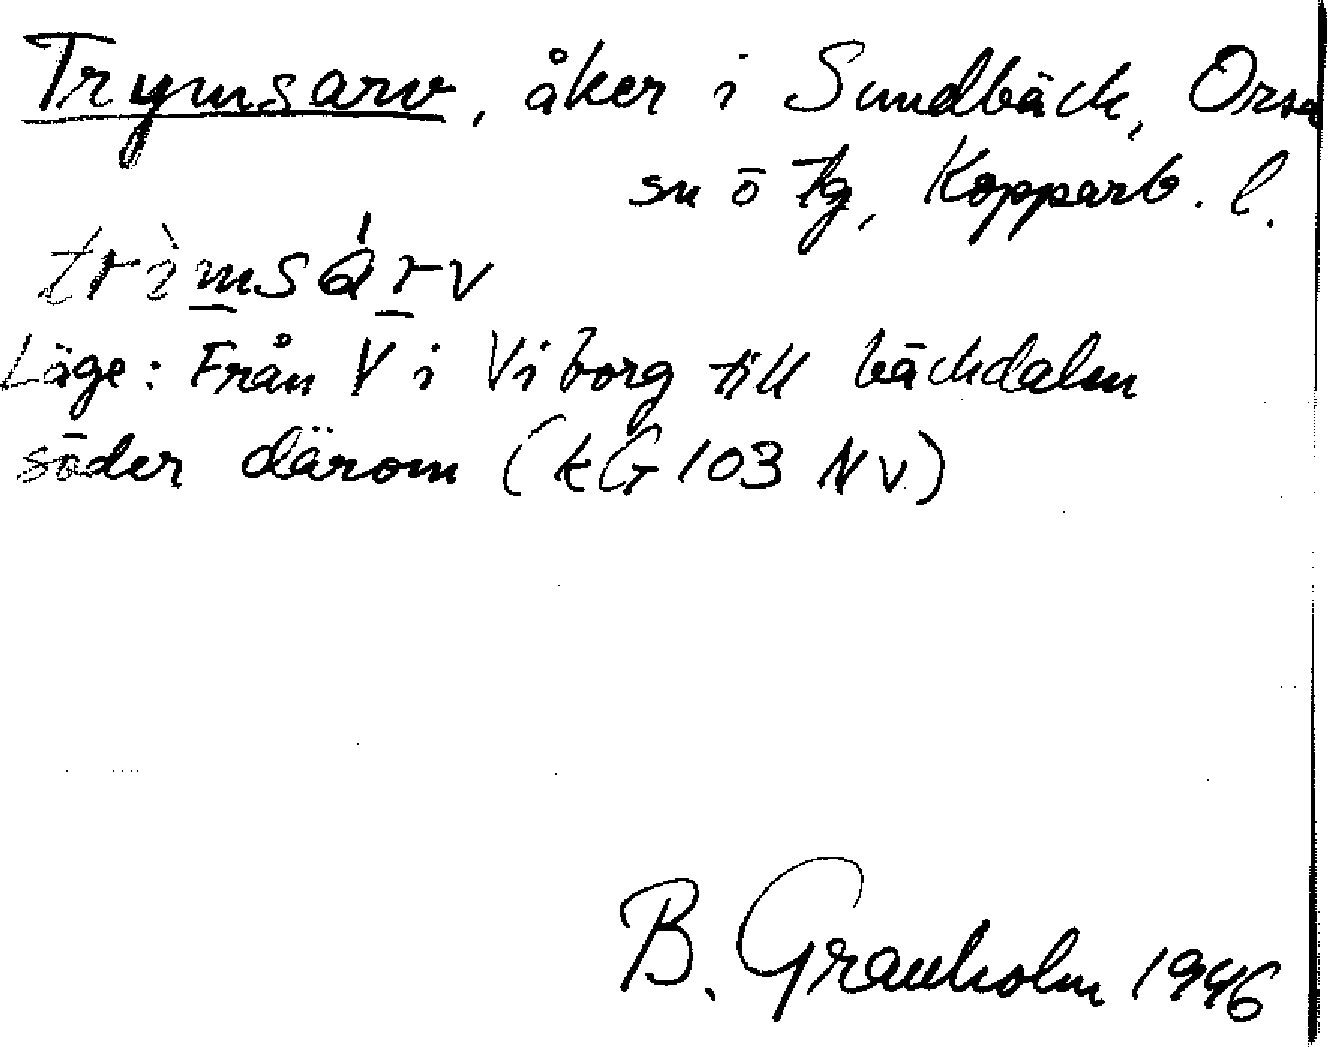 Trymsarv, åker i Sundbäck, Orsa
sn ö tg, Kopparb. l.
trìmsárv
Läge: Från V i Viborg till bäckdalen
söder därom (kG 103 NV)
B. Granholm 1946